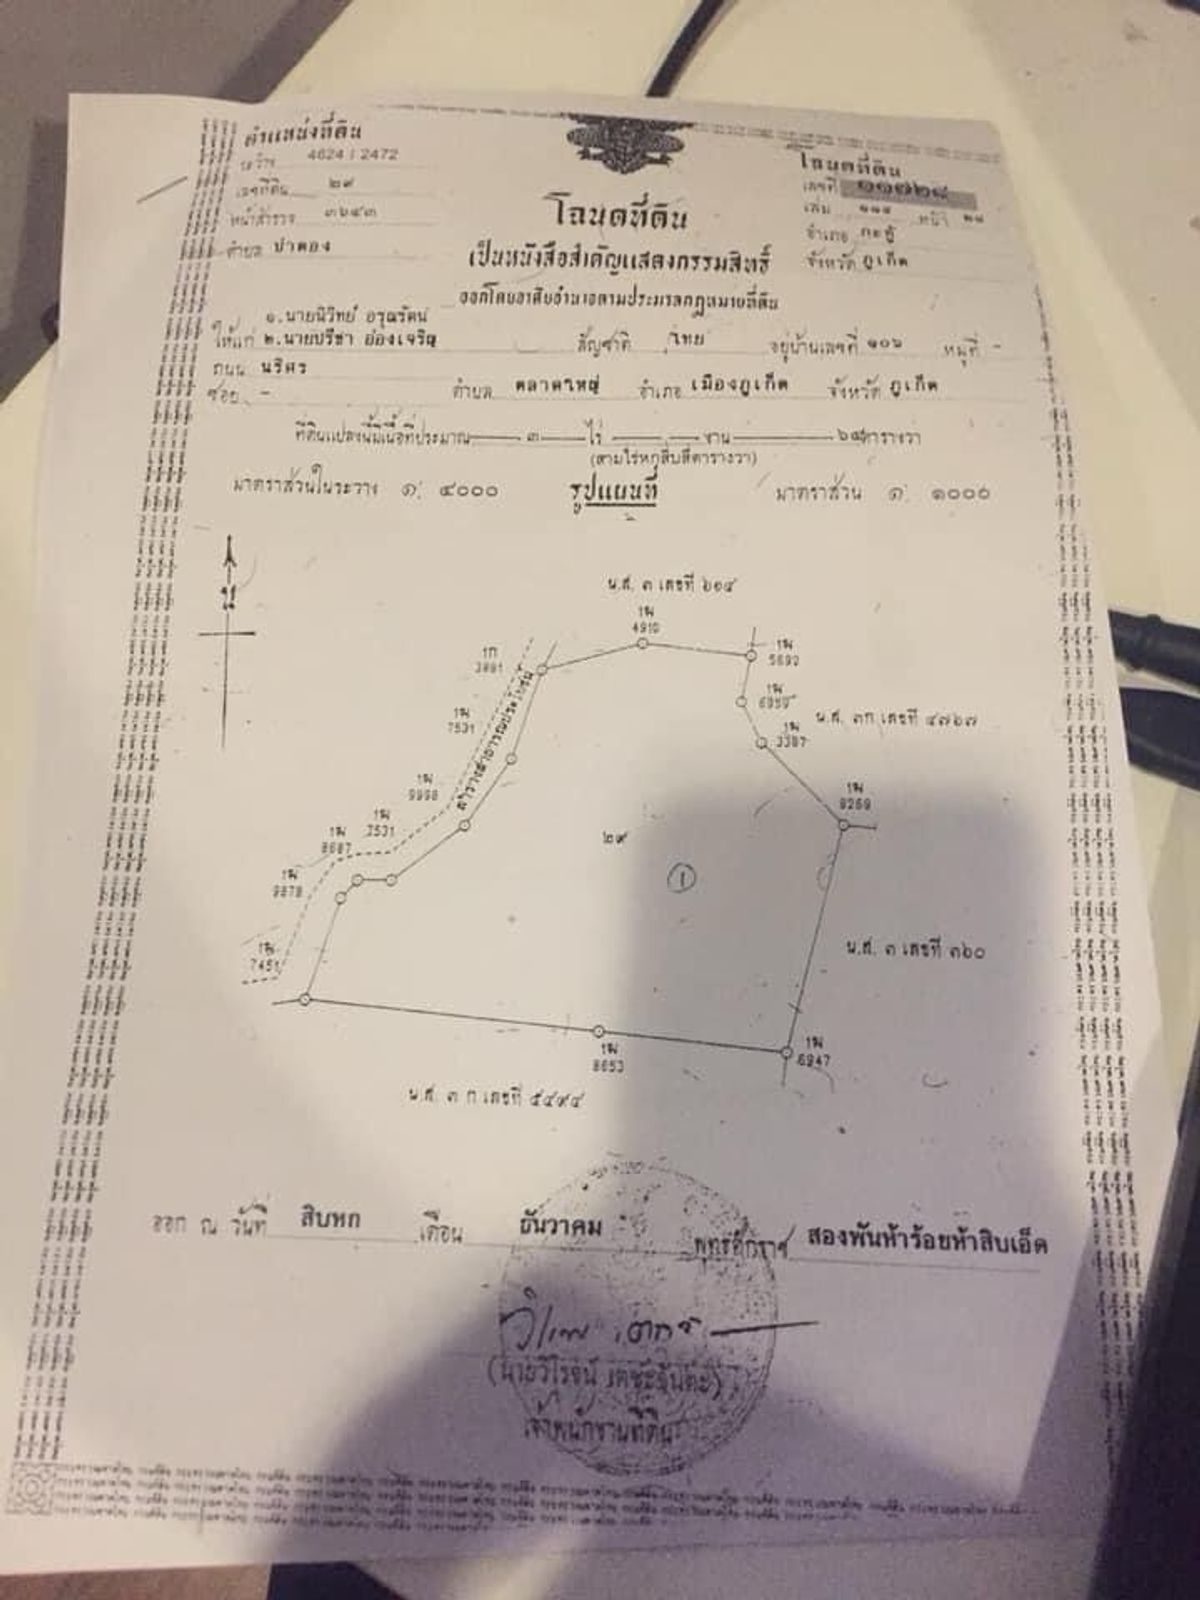 ตำแหน่งที่ดิน
ระวาง 4624 I 2472
เลขที่ดิน ๒๙
หน้าสำรวจ ๓๖๔๓
ตำบล ป่าตอง
โฉนดที่ดิน
เลขที่
เล่ม ๑๑๘ หน้า ๒๘
อำเภอ กะทู้
จังหวัด ภูเก็ต
โฉนดที่ดิน
เป็นหนังสือสำคัญแสดงกรรมสิทธิ์
ออกโดยอาศัยอำนาจตามประมวลกฎหมายที่ดิน
๑.นายนิวิทย์ อรุณรัตน์
ให้แก่ ๒.นายปรีชา อ๋องเจริญ สัญชาติ ไทย อยู่บ้านเลขที่ ๑๐๖ หมู่ที่ -
ถนน นริศร
ซอย - ตำบล ตลาดใหญ่ อำเภอ เมืองภูเก็ต จังหวัด ภูเก็ต
ที่ดินแปลงนี้มีเนื้อที่ประมาณ ๓ ไร่ - งาน ๖๔ ตารางวา
(สามไร่หกสิบสี่ตารางวา)
มาตราส่วนในระวาง ๑: ๔๐๐๐ รูปแผนที่ มาตราส่วน ๑: ๑๐๐๐
น
น.ส. ๓ เลขที่ ๖๑๔
1ฒ
4910
1ก
3891
1ฒ
5692
1ฒ
6959
1ฒ
7531
น.ส. ๓ก เลขที่ ๔๗๖๗
1ฒ
3387
ลำรางสาธารณประโยชน์
1ฒ
9998
1ฒ
9269
1ฒ
7531
1ฒ
8687
๒๙
1ฒ
9878
1
1ฒ
7451
น.ส. ๓ เลขที่ ๓๖๐
1ฒ
8653
1ฒ
6947
น.ส. ๓ ก เลขที่ ๕๔๙๔
ออก ณ วันที่ สิบหก เดือน ธันวาคม พุทธศักราช สองพันห้าร้อยห้าสิบเอ็ด
(นายวิโรจน์ เตชะฐันตะ)
เจ้าพนักงานที่ดิน